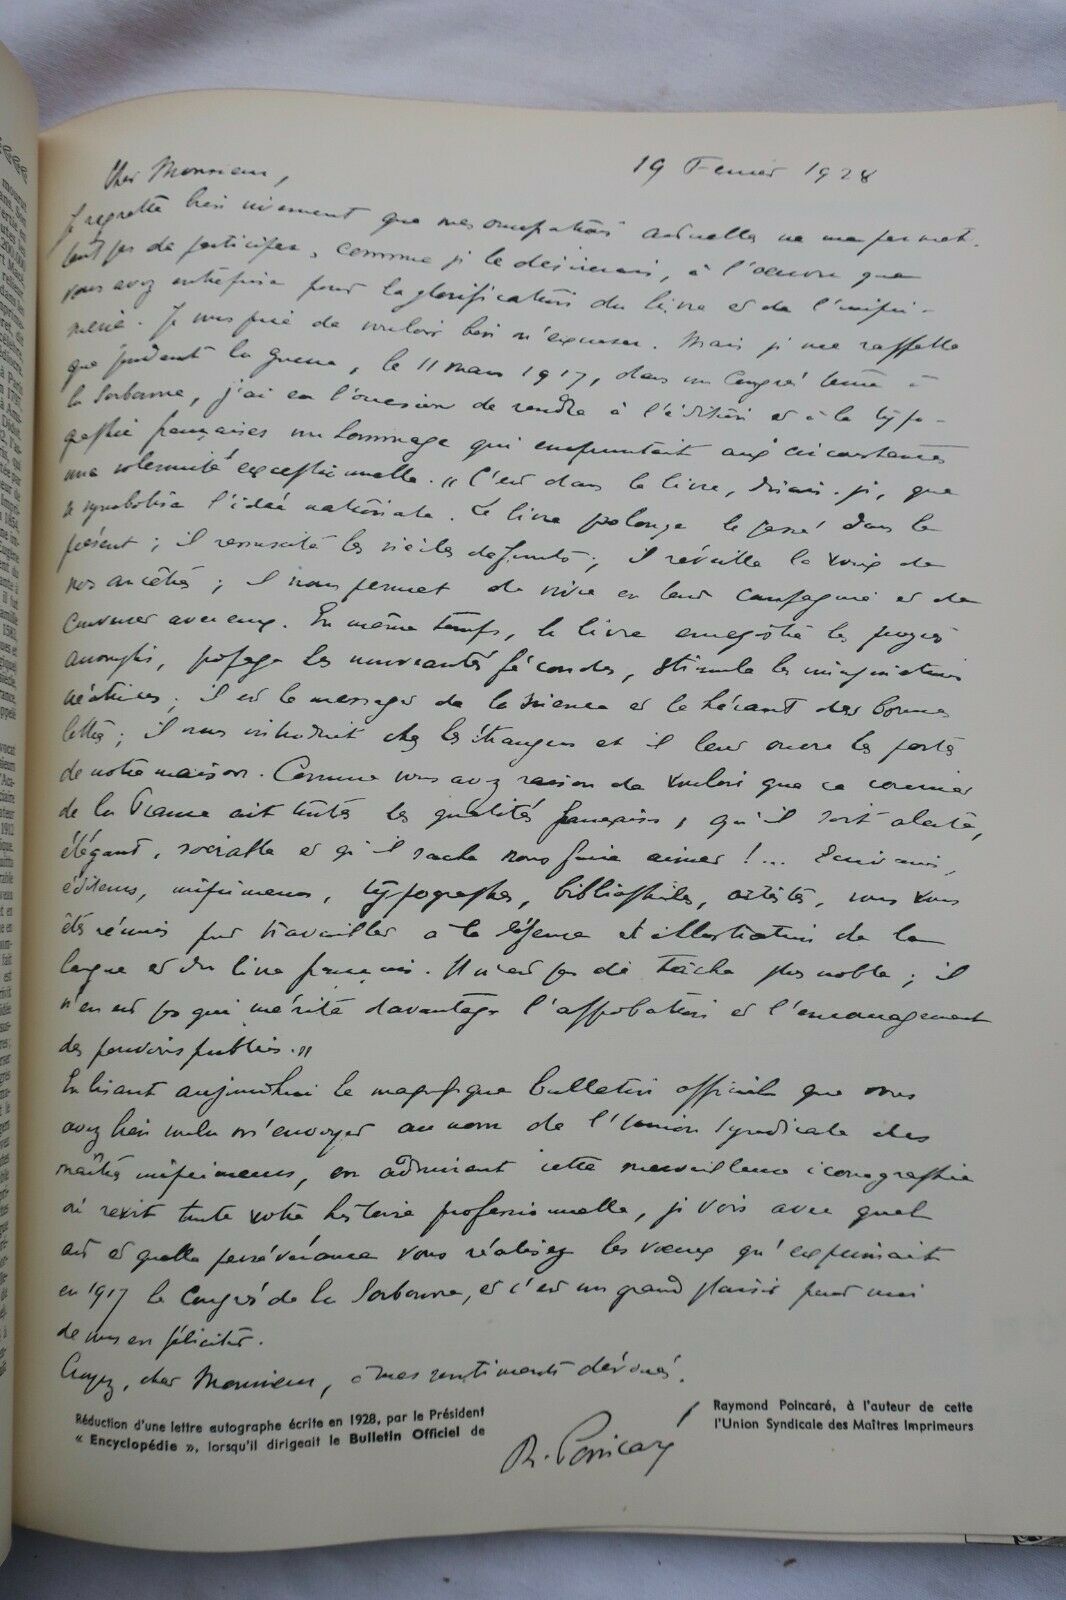 19 Février 1928
Cher Monsieur,
Je regrette bien vivement que mes occupations actuelles ne me permet-
tent pas de participer, comme je le désirerais, à l'œuvre que
vous avez entreprise pour la glorification du livre et de l'impri-
merie. Je vous prie de vouloir bien m'excuser. Mais je me rappelle
que pendant la guerre, le 11 mars 1917, dans un Congrès tenu à
la Sorbonne, j'ai eu l'occasion de rendre à l'édition et à la typo-
graphie françaises un hommage qui empruntait aux circonstances
une solennité exceptionnelle. « C'est dans le livre, disais-je, que
se symbolise l'idée nationale. Le livre prolonge le passé dans le
présent ; il ressuscite les siècles défunts ; il réveille la voix de
nos ancêtres ; il nous permet de vivre en leur compagnie et de
converser avec eux. En même temps, le livre enregistre les progrès
accomplis, propage les nouveautés fécondes, stimule les imaginations
créatrices ; il est le messager de la science et le héraut des bonnes
lettres ; il nous introduit chez les étrangers et il leur ouvre les portes
de notre maison. Comme vous avez raison de vouloir que ce courrier
de la France ait toutes les qualités françaises, qu'il soit alerte,
élégant, sociable et qu'il sache nous faire aimer !... Ecrivains,
éditeurs, imprimeurs, typographes, bibliophiles, artistes, vous vous
êtes réunis pour travailler à la défense et illustration de la
langue et du livre français. Il n'est pas de tâche plus noble ; il
n'en est pas qui mérite davantage l'approbation et l'encouragement
des pouvoirs publics. »
En lisant aujourd'hui le magnifique bulletin officiel que vous
avez bien voulu m'envoyer au nom de l'Union Syndicale des
maîtres imprimeurs, en admirant cette merveilleuse iconographie
où revit toute votre histoire professionnelle, je vois avec quel
art et quelle persévérance vous réalisez les vœux qu'exprimait
en 1917 le Congrès de la Sorbonne, et c'est un grand plaisir pour moi
de vous en féliciter.
Croyez, cher Monsieur, à mes sentiments dévoués.
R. Poincaré
Réduction d'une lettre autographe écrite en 1928, par le Président Raymond Poincaré, à l'auteur de cette
« Encyclopédie », lorsqu'il dirigeait le Bulletin Officiel de l'Union Syndicale des Maîtres Imprimeurs